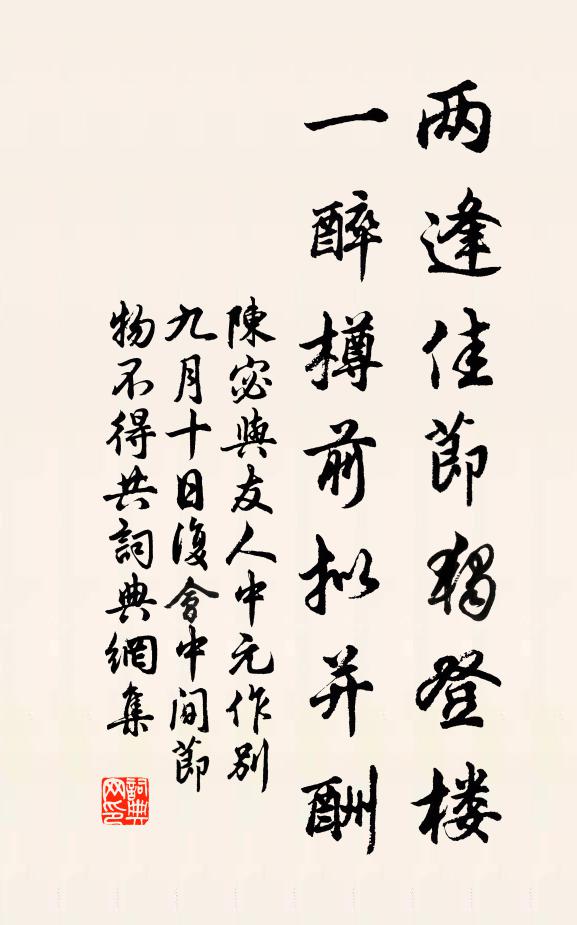 两逢佳節獨登楼
一醉樽前拟并酬
陳宓與友人中元作别
九月十日復會中间節
物不得共詞典網集
詞典網印